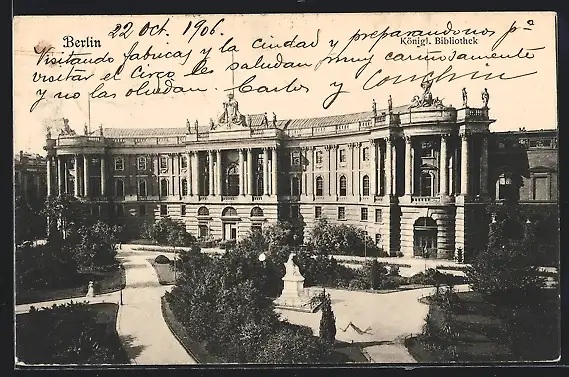 Berlin
22 Oct. 1906.
Königl. Bibliothek
Visitando fabricas y la ciudad y preparandonos pª
visitar el Circo les saludan muy cariñosamente
y no las olvidan. Carlos y Conchin